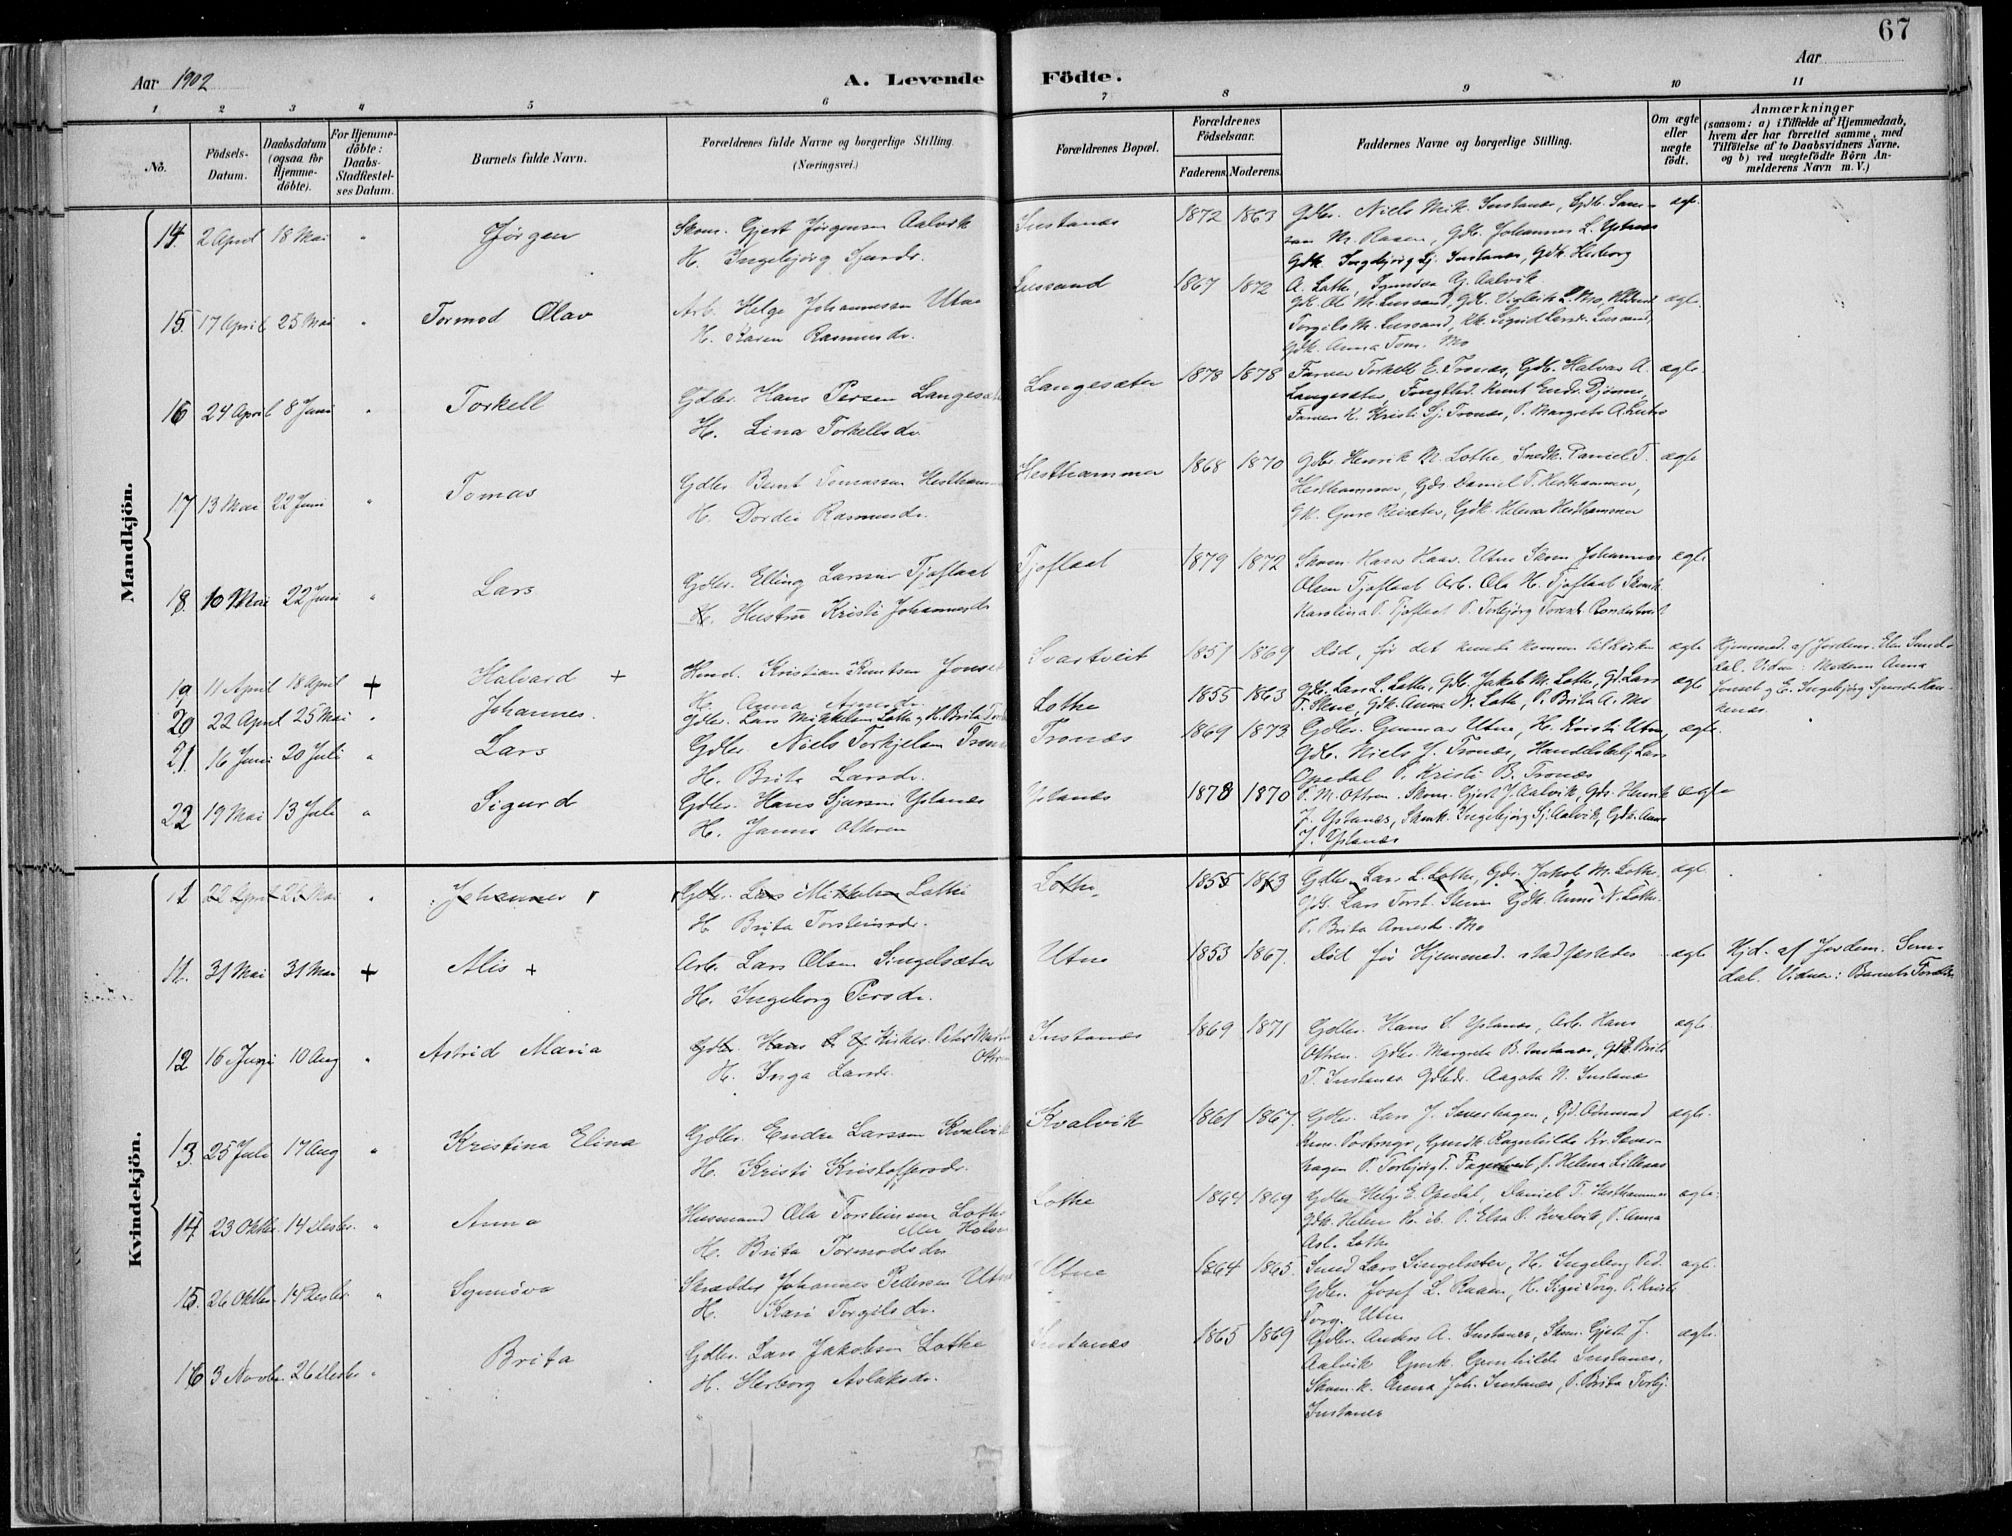 67
Aar 1902
A. Levende Födte.
Aar
1 2 3 4 5 6 7 8 9 10 11
No.
Födsels-Datum.
Daabsdatum (ogsaa for Hjemme-döbte).
For Hjemme-döbte: Daabs-Stadfæstel-ses Datum.
Barnets fulde Navn.
Forældrenes fulde Navne og borgerlige Stilling. (Næringsvei.)
Forældrenes Bopæl.
Forældrenes Födselsaar.
Faderens. Moderens.
Faddernes Navne og borgerlige Stilling.
Om ægte eller uægte födt.
Anmærkninger (saasom: a) i Tilfælde af Hjemmedaab, hvem der har forrettet samme, med Tilföielse af to Daabsvidners Navne, og b) ved uægtefödte Börn An-melderens Navn m. V.)
Mandkjön.
14. 2 April 18 Mai " Jörgen
Skom. Gjert Jörgensen Aalvik
H. Ingebjörg Sjursdr.
Instanes 1872 1863
Gdbr. Niels Mik. Instanes, Gdb. Lars
M. Raaen, Gdb. Johannes L. Ystnes
Gdk. Ingebjörg Sj. Instanes, Gdk. Herborg
A. Lothe, Synnöva Aalvik
ægte
15. 17 April 25 Mai " Tormod Olav
Arb. Helge Johannessen Utne
H. Karen Rasmusdr.
Lussand 1867 1872
Gk. Ole M. Lussand, Gk. Vigleik L. Mo,
Torgils M. Lussand, Kk. Sigrid Larsdr. Lussand,
Gdk. Anna Tom. Mo
ægte.
16 24 April 8 Juni " Torkell
Gdbr. Hans Persen Langesæter
H. Lina Torkellsdr.
Langesæter 1878 1878
Farver Torkell E. Tronæs, Gdb. Halvar A.
Langesæter, Knut Endr. Djönne,
Farver K. Kristi Sj. Tronæs, P. Margreta A.
ægte.
17 13 Mai 22 Juni " Tomas
Gdbr. Bernt Tomassen Hesthammer
H. Dordei Rasmusdr.
Hesthammer 1868 1870
Gdbr. Henrik M. Lothe, Snedk. Daniel T.
Hesthammer, Gdr. Daniel T. Hesthammer,
Gk. Guro Reisæter, Gdk. Helena Hesthammer
ægte
18. 10 Mai 22 Juni " Lars
Gdbr. Elling Larssen Tjoflaat
H. Hustru Kristi Johannesdr
Tjoflaat 1879 1872
Skom. Hans Haav. Utne Skom. Johannes
Olsen Tjoflaat Arb. Ola H. Tjoflaat
Karolina P. Tjoflaat P. Torbjörg
ægte
19 11 April 18 April + Halvard +
Husd. Kristian Knutsen Jonset
H. Anna
Svartveit 1851 1869
Död, för det kunde komme til kirken
ægte
Hjemmed. af Jordem. Elen Sunds-
dal. Vidner: Moderen Anna
Jonset og E. Ingebjörg Sjursdr. Han-
kenes.
20 22 April 25 Mai " Johannes.
Gdbr. Lars Mikkelsen Lothe og H. Brita
Lothe 1855 1863
Gdb. Lars L. Lothe, Gdb. Jakob M. Lothe, Gd. Lars
T. Skeie, Gdk. Anna N. Lothe, P. Brita A. Mo
ægte
21. 16 Juni 20 Juli " Lars
Gdbr. Niels Torkjelsen Tronæs
H. Brita Larsdr.
Tronæs 1869 1873
Gdbr. Gunnar Utne, H. Kristi Utne,
Gdb. Niels J. Tronæs, Handelsbetj. Lars
Opedal P. Kristi B. Tronæs
ægte.
22 19 Mai 13 Juli " Sigurd
Gdbr. Hans Sjursen Ystanes
H. Janna Ottesen
Ystanes 1878 1870
P. M. Ottesen. Skom. Gjert J. Aalvik, Gdr. Henrik
J. Ystanes, Skmk. Ingebjörg Sj. Aalvik, Gdk. Anna
J. Ystanes
ægte
Kvindekjön.
11 22 April 25 Mai " Johannes
Gdbr. Lars Mikkelsen Lothe
H. Brita Torsteinsdr.
Lothe 1855 1863
Gdbr. Lars L. Lothe, Gdr. Jakob M. Lothe.
Gdb. Lars Torst. Skeie Gdk. Anna N. Lothe.
P. Brita Arnesdr. Mo
ægte.
11. 31 Mai 31 Mai + Alis +
Arb. Lars Olsen Singelsæter
H. Ingeborg Persdr.
Utne 1853 1867.
Död för Hjemmed. stadfæstedes
ægte
Hjd. af Jordem. Sun-
dal. Vidner: Barnets Forældre
12 16 Juni 10 Aug " Astrid Maria
Gdbr. Hans Kirkes. Peter Martin
Ottesen
H. Inga Larsdr.
Instanes 1869 1871
Gdbr. Hans S. Ystanes, Arb. Hans
Ottesen. Gdbr. Margreta B. Instanes, Gdk. Brita
T. Instanes Gdbdr. Aagota N. Instanes
ægte.
13. 25 Juli 17 Aug " Kristina Elina
Gdbr. Endre Larssen Kvalvik
H. Kristi Kristoffersdr.
Kvalvik 1861 1867.
Gdbr. Lars J. Samshagen, Gd. Odmund
Gmdk. Ragnhilda Kr. Sams-
hagen P. Torbjörg T. Fagertveit, P. Helena Lillenes
ægte.
14. 23 Oktbr. 14 Decbr. " Anna
Husmand Ola Torsteinsen Lothe
eller
H. Brita Tormodsdr.
Lothe 1864 1869
Gdbr. Helge E. Opedal, Daniel T. Hesthammer
Gdk. Helena H. ib. P. Elsa O. Kvalvik, P. Anna
Asl. Lothe
ægte.
15. 26 Oktbr. 14 Decbr. " Synnöva
Skrædder Johannes Pedersen Utne
H. Kari Torgilsdr.
Utne 1864 1865.
Smed Lars Singelsæter, H. Ingeborg Ped.
Gdbr. Josef L. Raaen, H. Sigri Torg. P. Kristi
Torg. Utne
ægte.
16 3 Novbr. 26 Decbr. " Brita
Gdbr. Lars Jakobsen Lothe
H. Herborg Aslaksdr.
Instanes 1865 1869
Gdbr. Anders A. Instanes, Skom. Gjert J.
Aalvik Gmk. Gunhilda Instanes,
Skom. k. Anna Joh. Instanes, P. Brita Torbj.
Instanes
ægte.